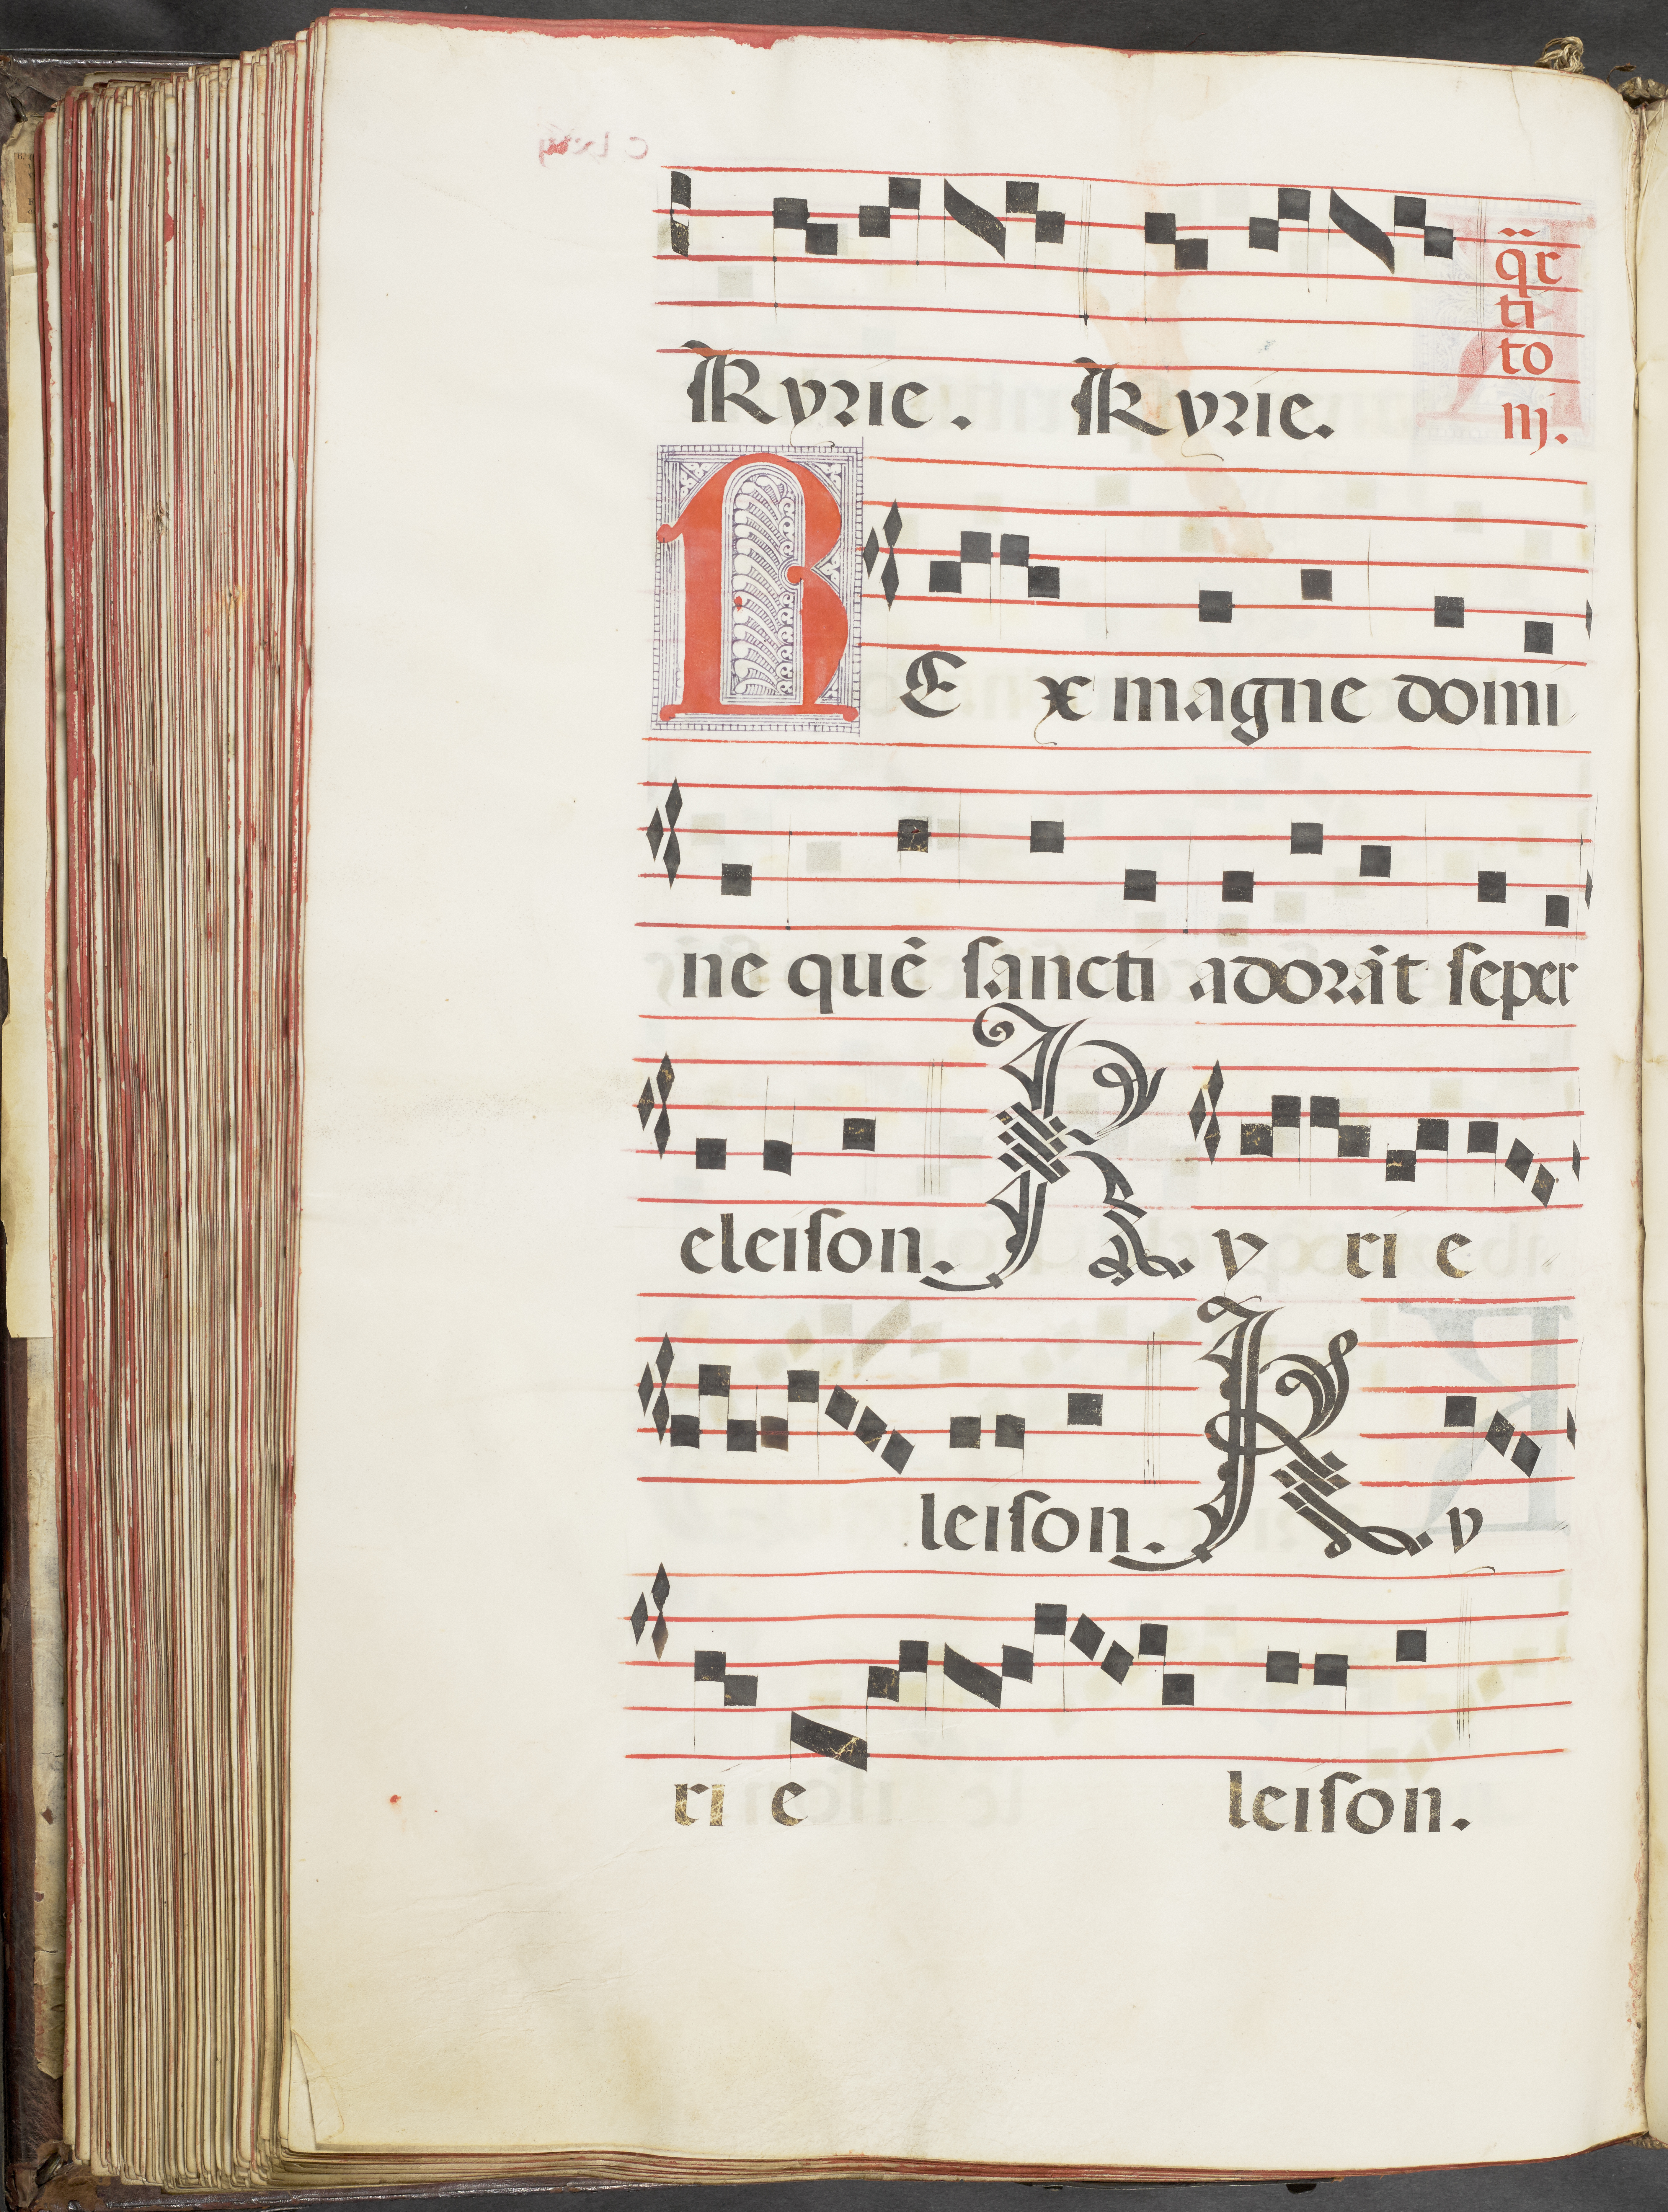 Kyrie. Kyrie.
q̈r
ti
to
nj.
REx magne domi
ne quē sancti adorāt seper
eleison. Ky ri e
leison. Ky
ri e leison.